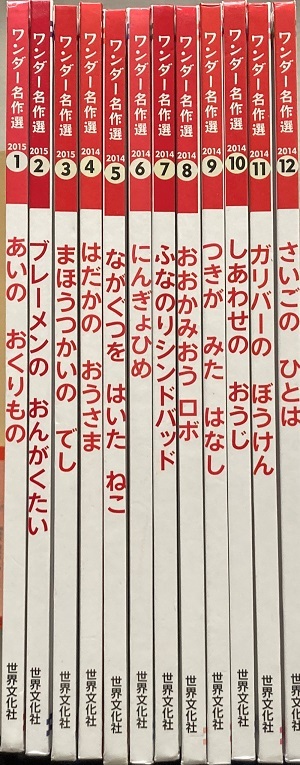 ワンダー名作選 2015 1 あいの おくりもの 世界文化社
ワンダー名作選 2015 2 ブレーメンの おんがくたい 世界文化社
ワンダー名作選 2015 3 まほうつかいの でし 世界文化社
ワンダー名作選 2014 4 はだかの おうさま 世界文化社
ワンダー名作選 2014 5 ながぐつを はいた ねこ 世界文化社
ワンダー名作選 2014 6 にんぎょひめ 世界文化社
ワンダー名作選 2014 7 ふなのりシンドバッド 世界文化社
ワンダー名作選 2014 8 おおかみおう ロボ 世界文化社
ワンダー名作選 2014 9 つきが みた はなし 世界文化社
ワンダー名作選 2014 10 しあわせの おうじ 世界文化社
ワンダー名作選 2014 11 ガリバーの ぼうけん 世界文化社
ワンダー名作選 2014 12 さいごの ひとは 世界文化社